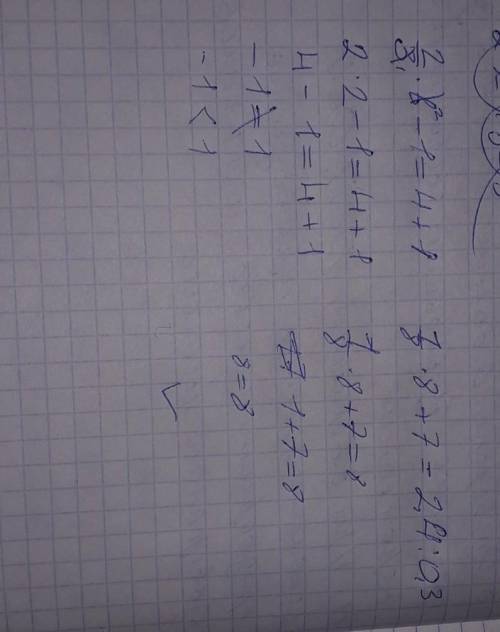 2/8 · 8 - 1 = 4 + 1
2 · 2 - 1 = 4 + 1
4 - 1 = 4 + 1
- 1 ≠ 1
- 1 < 1
1/8 · 8 + 7 = 2,4 : 0,3
1/8 · 8 + 7 = 8
1 + 7 = 8
8 = 8